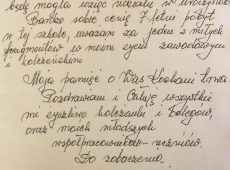 będę mogła wziąć udziału w uroczystości
Bardzo sobie cenię 7-letni pobyt
w tej szkole, uważam za jeden z miłych
fragmentów w moim życiu zawodowym
i koleżeńskim.
Moja pamięć o Was Kochani trwa
Pozdrawiam i Całuję wszystkie
mi życzliwe koleżanki i Kolegów,
oraz moich młodszych
współpracowników - uczniów.
Do zobaczenia.